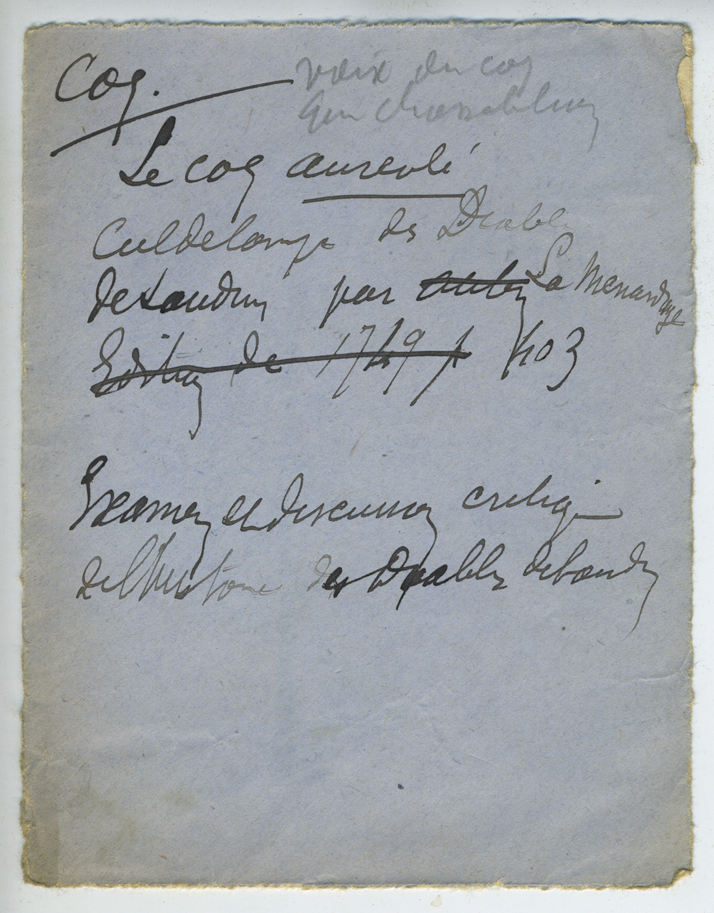 Coq.
voix du coq
qui
Le coq auréolé
Cul de lampe des Diables
de Loudun par La Menardaye
Edition de 1749 p 403
Examen et discussion critique
de l'histoire des Diables de Loudun